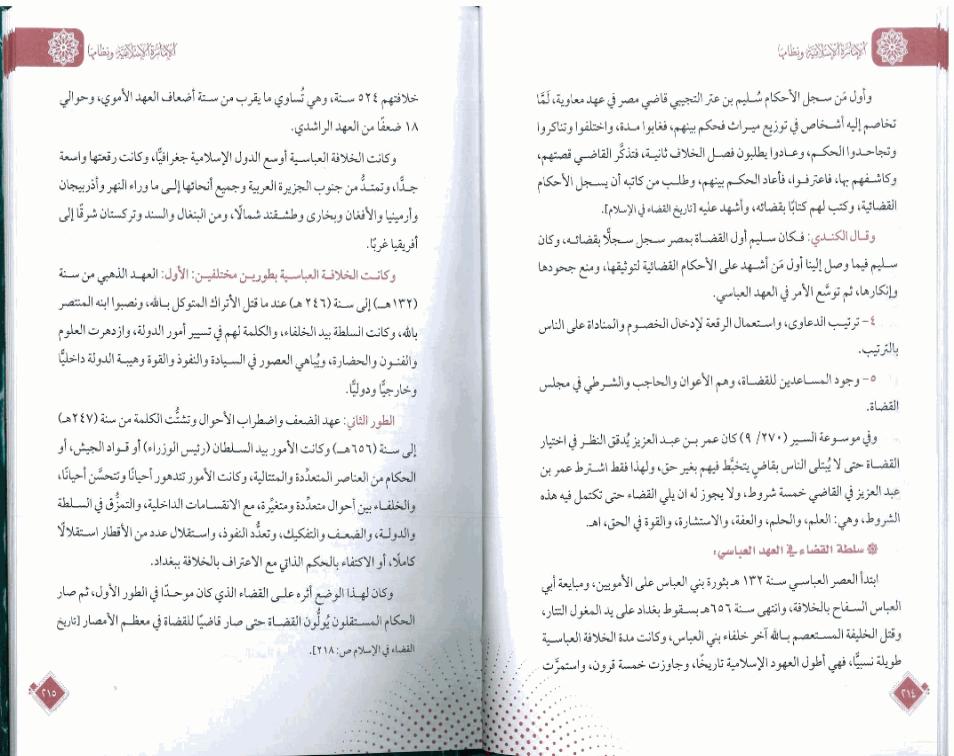 الإمارة الإسلامية ونظامها
وأول مَن سجل الأحكام سُليم بن عتر التجيبي قاضي مصر في عهد معاوية، لَمَّا
تخاصم إليه أشخاص في توزيع ميراث فحكم بينهم، فغابوا مدة، واختلفوا وتناكروا
وتجاحدوا الحكم، وعادوا يطلبون فصل الخلاف ثانية، فتذكَّر القاضي قصتهم،
وكاشفهم بها، فاعترفوا، فأعاد الحكم بينهم، وطلب من كاتبه أن يسجل الأحكام
القضائية، وكتب لهم كتابًا بقضائه، وأشهد عليه [تاريخ القضاء في الإسلام].
وقال الكندي: فكان سليم أول القضاة بمصر سجل سجلًّا بقضائه، وكان
سليم فيما وصل إلينا أول مَن أشهد على الأحكام القضائية لتوثيقها، ومنع جحودها
وإنكارها، ثم توسَّع الأمر في العهد العباسي.
٤- ترتيب الدعاوى، واستعمال الرقعة لإدخال الخصوم والمناداة على الناس
بالترتيب.
٥- وجود المساعدين للقضاة، وهم الأعوان والحاجب والشرطي في مجلس
القضاة.
وفي موسوعة السير (٢٧٠/ ٩) كان عمر بن عبد العزيز يُدقق النظر في اختيار
القضاة حتى لا يُبتلى الناس بقاضٍ يتخبَّط فيهم بغير حق، ولهذا فقط اشترط عمر بن
عبد العزيز في القاضي خمسة شروط، ولا يجوز له ان يلي القضاء حتى تكتمل فيه هذه
الشروط، وهي: العلم، والحلم، والعفة، والاستشارة، والقوة في الحق، اهـ.
سلطة القضاء في العهد العباسي:
ابتدأ العصر العباسي سنة ١٣٢ هـ بثورة بني العباس على الأمويين، ومبايعة أبي
العباس السفاح بالخلافة، وانتهى سنة ٦٥٦هـ بسقوط بغداد على يد المغول التتار،
وقتل الخليفة المستعصم بالله آخر خلفاء بني العباس، وكانت مدة الخلافة العباسية
طويلة نسبيًّا، فهي أطول العهود الإسلامية تاريخًا، وجاوزت خمسة قرون، واستمرَّت
٢١٤
الإمارة الإسلامية ونظامها
خلافتهم ٥٢٤ سنة، وهي تُساوي ما يقرب من ستة أضعاف العهد الأموي، وحوالي
١٨ ضعفًا من العهد الراشدي.
وكانت الخلافة العباسية أوسع الدول الإسلامية جغرافيًّا، وكانت رقعتها واسعة
جدًّا، وتمتدُّ من جنوب الجزيرة العربية وجميع أنحائها إلى ما وراء النهر وأذربيجان
وأرمينيا والأفغان وبخارى وطشقند شمالًا، ومن البنغال والسند وتركستان شرقًا إلى
أفريقيا غربًا.
وكانت الخلافة العباسية بطورين مختلفين: الأول: العهد الذهبي من سنة
(١٣٢هـ) إلى سنة (٢٤٦ هـ) عند ما قتل الأتراك المتوكل بالله، ونصبوا ابنه المنتصر
بالله، وكانت السلطة بيد الخلفاء، والكلمة لهم في تسيير أمور الدولة، وازدهرت العلوم
والفنون والحضارة، ويُباهي العصور في السيادة والنفوذ والقوة وهيبة الدولة داخليًّا
وخارجيًّا ودوليًّا.
الطور الثاني: عهد الضعف واضطراب الأحوال وتشتُّت الكلمة من سنة (٢٤٧هـ)
إلى سنة (٦٥٦هـ) وكانت الأمور بيد السلطان (رئيس الوزراء) أو قواد الجيش، أو
الحكام من العناصر المتعدِّدة والمتتالية، وكانت الأمور تتدهور أحيانًا وتتحسَّن أحيانًا،
والخلفاء بين أحوال متعددة ومتغيِّرة، مع الانقسامات الداخلية، والتمزُّق في السلطة
والدولة، والضعف والتفكيك، وتعدُّد النفوذ، واستقلال عدد من الأقطار استقلالًا
كاملًا، أو الاكتفاء بالحكم الذاتي مع الاعتراف بالخلافة ببغداد.
وكان لهذا الوضع أثره على القضاء الذي كان موحدًا في الطور الأول، ثم صار
الحكام المستقلون يُولُّون القضاة حتى صار قاضيًا للقضاة في معظم الأمصار [تاريخ
القضاء في الإسلام ص: ٢١٨].
٢١٥